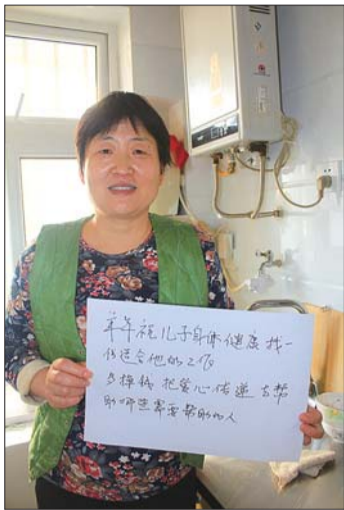 羊年祝儿子身体健康 找一
份适合他的工作
多挣钱 把爱心传递 去帮
助哪些需要帮助的人